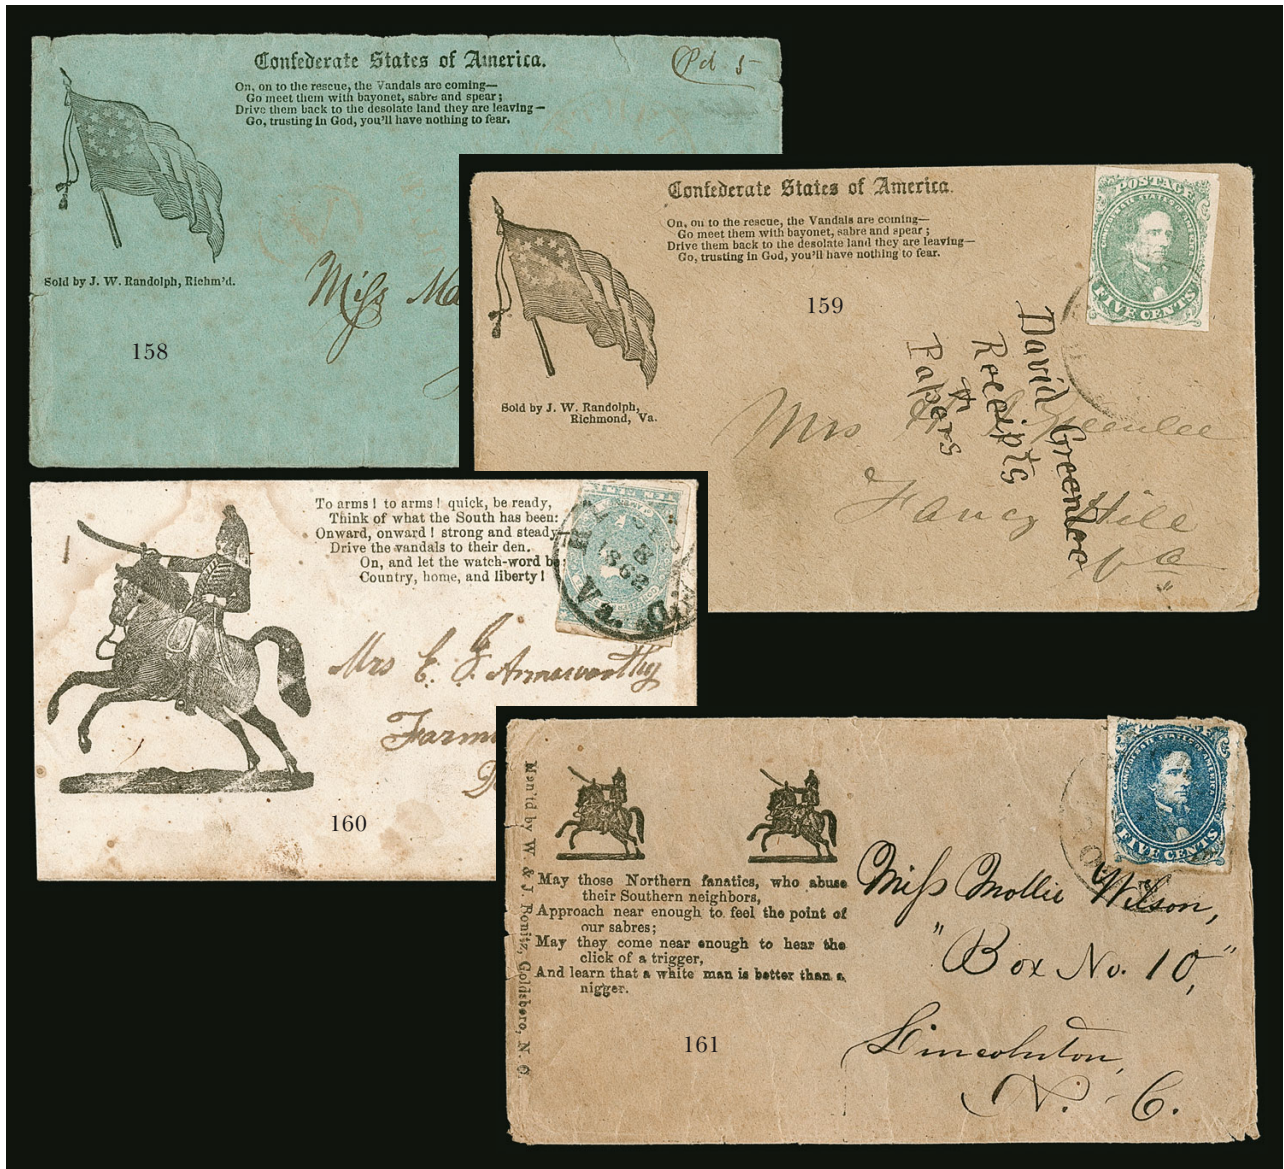 Confederate States of America.
On, on to the rescue, the Vandals are coming—
Go meet them with bayonet, sabre and spear;
Drive them back to the desolate land they are leaving—
Go, trusting in God, you'll have nothing to fear.
Pd 5
Sold by J. W. Randolph, Richm'd.
Miss
158
Confederate States of America.
On, on to the rescue, the Vandals are coming—
Go meet them with bayonet, sabre and spear;
Drive them back to the desolate land they are leaving—
Go, trusting in God, you'll have nothing to fear.
POSTAGE
CONFEDERATE STATES OF AMERICA
FIVE CENTS
159
Sold by J. W. Randolph,
Richmond, Va.
David Greenlee
Receipts
&
Papers
Mrs Greenlee
Fancy Hill
Va
To arms! to arms! quick, be ready,
Think of what the South has been:
Onward, onward! strong and steady
Drive the vandals to their den.
On, and let the watch-word be
Country, home, and liberty!
8
1862
Va.
Mrs E. J. Armsworthy
Farm
160
Man'd by W. & J. Bonitz, Goldsboro, N. C.
May those Northern fanatics, who abuse
their Southern neighbors,
Approach near enough to feel the point of
our sabres;
May they come near enough to hear the
click of a trigger,
And learn that a white man is better than a
nigger.
CONFEDERATE STATES OF AMERICA
FIVE CENTS
Miss Mollie Wilson,
"Box No. 10,"
Lincolnton,
N. C.
161